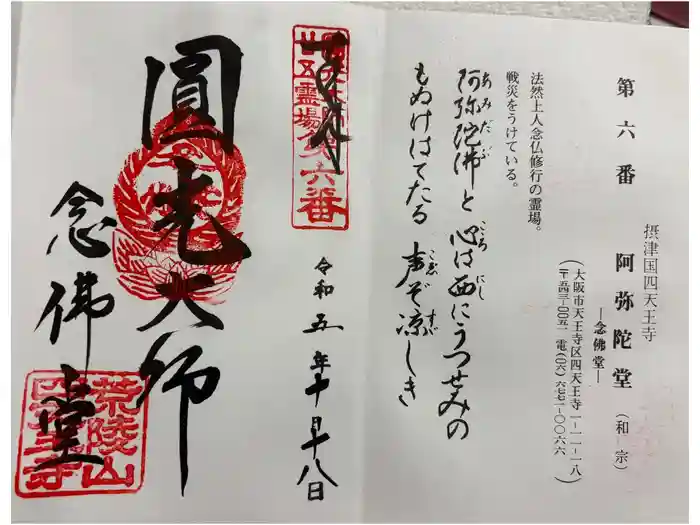 第六番
摂津国四天王寺
阿弥陀堂（和宗）
―念佛堂―
（大阪市天王寺区四天王寺一-一一-一八
〒五四三-〇〇五一 電（〇六）六七七一-〇〇六六）
法然上人念仏修行の霊場。
戦災をうけている。
阿弥陀佛と 心は西にうつせみの
あみだぶ こころ にし
もぬけはてたる 声ぞ凉しき
こゑ すゞ
奉拝
廿五霊場第六番
圓光大師
念佛堂
荒陵山
四天王寺
令和五年十月十八日